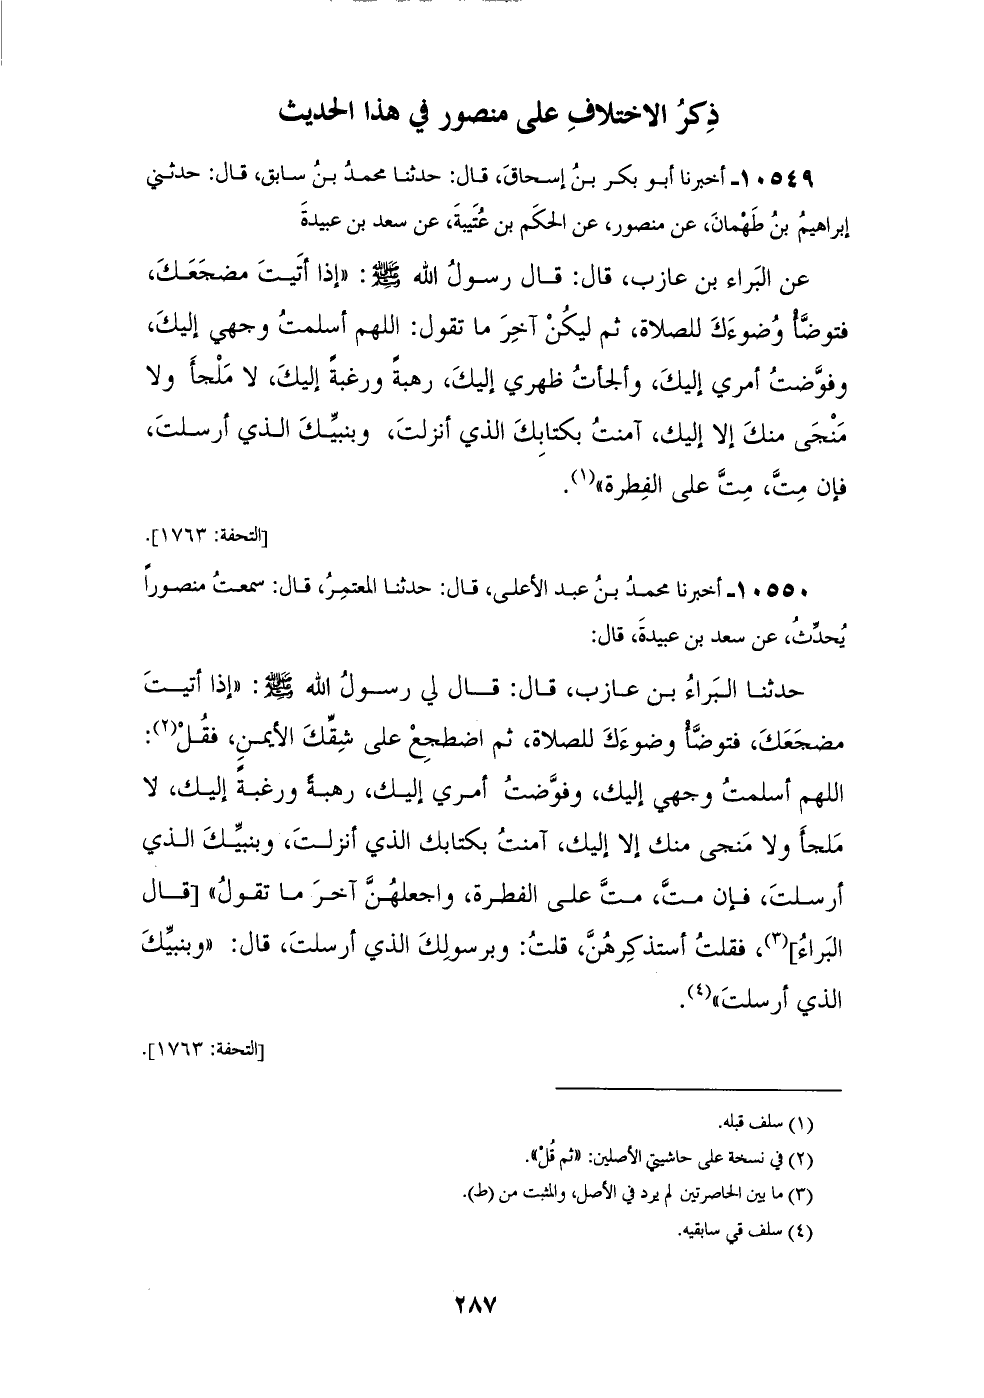 ذِكرُ الاختلافِ على منصور في هذا الحديث
١٠٥٤٩ـ أخبرنا أبو بكر بنُ إسحاقَ، قال: حدثنا محمدُ بنُ سابق، قال: حدثني
إبراهيمُ بنُ طَهْمانَ، عن منصور، عن الحكَم بن عُتَيبةَ، عن سعد بن عبيدةَ
عن البَراء بن عازب، قال: قال رسولُ الله ﷺ: «إذا أَتَيتَ مضجَعَكَ،
فتوضَّأْ وُضوءَكَ للصلاة، ثم ليكُنْ آخِرَ ما تقول: اللهم أسلمتُ وجهي إليكَ،
وفوَّضتُ أمري إليكَ، وألجأتُ ظهري إليكَ، رهبةً ورغبةً إليكَ، لا مَلْجأَ ولا
مَنْجَى منكَ إلا إليك، آمنتُ بكتابِكَ الذي أنزلتَ، وبنبيِّكَ الذي أرسلتَ،
فإن مِتَّ، مِتَّ على الفِطرة»(١).
[التحفة: ١٧٦٣].
١٠٥٥٠ـ أخبرنا محمدُ بنُ عبد الأعلى، قال: حدثنا المعتمِرُ، قال: سمعتُ منصوراً
يُحدِّثُ، عن سعد بن عبيدةَ، قال:
حدثنا البَراءُ بن عازب، قال: قال لي رسولُ الله ﷺ: «إذا أتيتَ
مضجَعَكَ، فتوضَّأْ وضوءَكَ للصلاة، ثم اضطجِعْ على شِقِّكَ الأيمنِ، فقُلْ(٢):
اللهم أسلمتُ وجهي إليك، وفوَّضتُ أمري إليك، رهبةً ورغبةً إليك، لا
مَلجأَ ولا مَنجى منك إلا إليك، آمنتُ بكتابك الذي أنزلتَ، وبنبيِّكَ الذي
أرسلتَ، فإن متَّ، متَّ على الفطرة، واجعلهُنَّ آخرَ ما تقولُ» [قال
البَراءُ](٣)، فقلتُ أستذكِرهُنَّ، قلتُ: وبرسولِكَ الذي أرسلتَ، قال: «وبنبيِّكَ
الذي أرسلتَ»(٤).
[التحفة: ١٧٦٣].
(١) سلف قبله.
(٢) في نسخة على حاشيتي الأصلين: «ثم قُلْ».
(٣) ما بين الحاصرتين لم يرد في الأصل، والمثبت من (ط).
(٤) سلف قي سابقيه.
٢٨٧